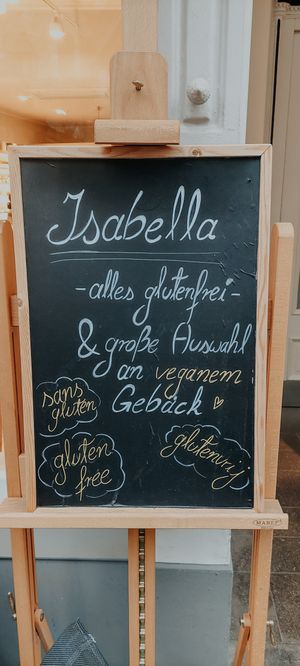 Isabella
-alles glutenfrei-
& große Auswahl
an veganem
Gebäck
sans
gluten
gluten
free
glutenvrij
MABEF